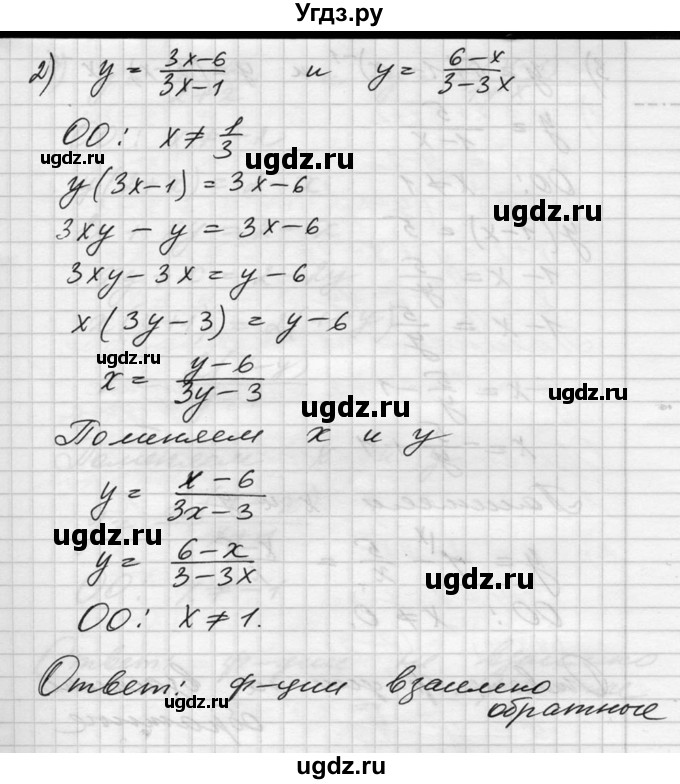 Угдз.ру
2) y = (3x-6)/(3x-1) и y = (6-x)/(3-3x)
ОО: x ≠ 1/3
ugdz.ru
ugdz.ru
y(3x-1) = 3x-6
ugdz.ru
3xy - y = 3x-6
3xy-3x = y-6
x(3y-3) = y-6
ugdz.ru
x = (y-6)/(3y-3)
ugdz.ru
ugdz.ru
Поменяем x и y
y = (x-6)/(3x-3)
ugdz.ru
y = (6-x)/(3-3x)
ugdz.ru
ОО: x ≠ 1.
ugdz.ru
Ответ: ф-ции взаимно
обратные
ugdz.ru
ugdz.ru